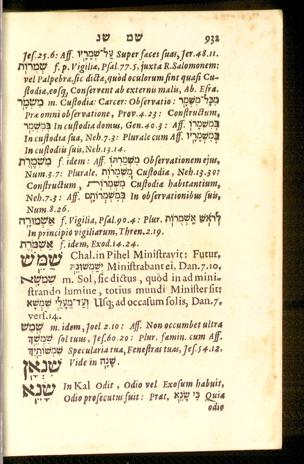 שמ שנ 932
Jes.25.6: Aff. עַל־שְׁמָרָיו Super faces suas, Jer.48.11.
שְׁמֻרוֹת f. p. Vigiliæ, Psal.77.5, juxta R. Salomonem:
vel Palpebræ, sic dictæ, quòd oculorum sint quasi Cu-
stodiæ, eosq́; Conservent ab externis malis, Ab. Esra.
מִשְׁמָר m. Custodia: Carcer: Observatio: מִכָּל־מִשְׁמָר
Præ omni observatione, Prov.4.23: Constructum,
בְּמִשְׁמַר In custodia domus, Gen.40.3: Aff. בְּמִשְׁמָרוֹ
In custodia sua, Neh.7.3: Plurale cum Aff.
In custodiis suis, Neh.13.14.
מִשְׁמֶרֶת f. idem: Aff. מִשְׁמַרְתּוֹ Observationem ejus,
Num.3.7: Plurale, מִשְׁמָרוֹת Custodiæ, Neh.13.30:
Constructum, Custodiæ habitantium,
Neh.7.3: Aff. בְּמִשְׁמְרוֹתָם In observationibus suis,
Num.8.26.
אַשְׁמוּרָה f. Vigilia, Psal.90.4: Plur. לְרֹאשׁ אַשְׁמֻרוֹת
In principio vigiliarum, Thren.2.19.
אַשְׁמֹרֶת f. idem, Exod.14.24.
שָׁמַשׁ Chal. in Pihel Ministravit: Futur,
יְשַׁמְּשׁוּנֵּהּ Ministrabant ei, Dan.7.10,
שִׁמְשָׁא m. Sol, sic dictus, quòd in ad mini-
strando lumine, totius mundi Minister sit:
וְעַד־מֶעָלֵי שִׁמְשָׁא Usq́; ad occasum solis, Dan.6,
vers.14.
שֶׁמֶשׁ m. idem, Joel.2.10: Aff. Non occumbet ultra
שִׁמְשֵׁךְ sol tuus, Jes.60.20: Plur. famin. cum Aff.
שִׁמְשׁוֹתַיִךְ Specularia tua, Fenestras tuas, Jes.54.12.
שִׁנְאָן Vide in שָׁנָה.
שָׂנֵא In Kal Odit, Odio vel Exosum habuit,
Odio prosecutus suit: Præt, כִּי שָׂנֵא Quia
odio